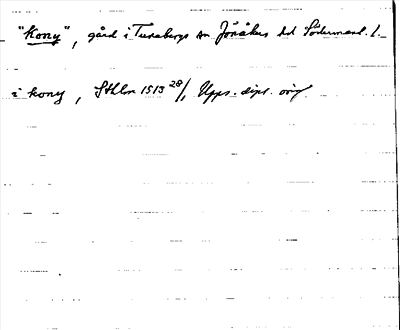 "Kony", gård i Tunabergs sn Jönåkers hd Södermanl. l.
i kony, Sthlm 1513 28/1 Upps. dipl. orig.